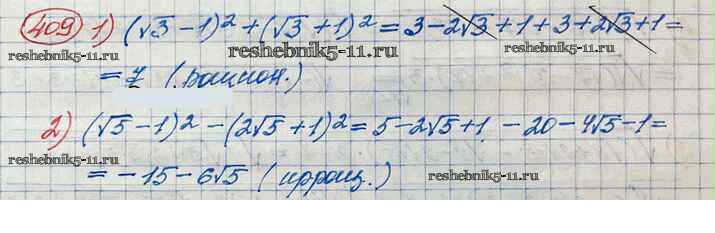 409 1) (√3 - 1)² + (√3 + 1)² = 3 - 2√3 + 1 + 3 + 2√3 + 1 =
reshebnik5-11.ru reshebnik5-11.ru
reshebnik5-11.ru
= 7 (рацион.)
2) (√5 - 1)² - (2√5 + 1)² = 5 - 2√5 + 1 - 20 - 4√5 - 1 =
reshebnik5-11.ru
= -15 - 6√5 (иррац.)
reshebnik5-11.ru